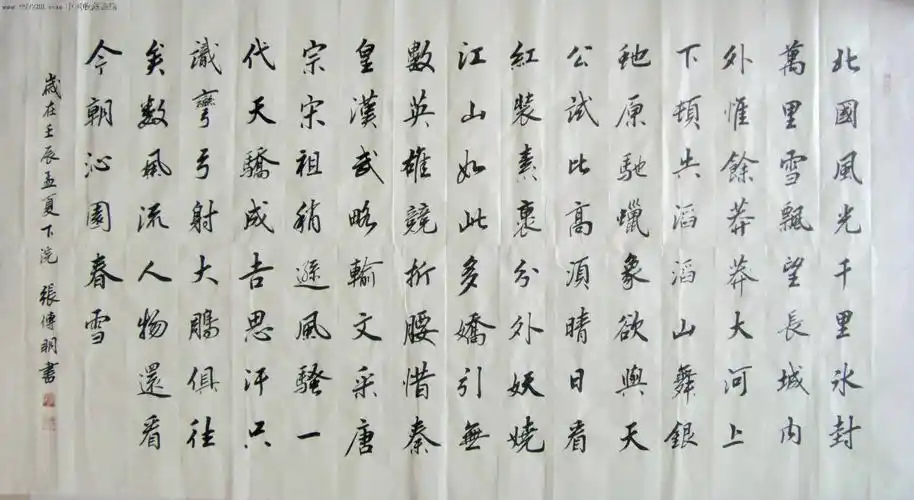 北國風光千里冰封
萬里雪飄望長城內
外惟餘莽莽大河上
下頓失滔滔山舞銀
虵原馳蠟象欲與天
公試比高須晴日看
紅裝素裹分外妖嬈
江山如此多嬌引無
數英雄競折腰惜秦
皇漢武略輸文采唐
宗宋祖稍遜風騷一
代天驕成吉思汗只
識彎弓射大鵰俱往
矣數風流人物還看
今朝沁園春雪
歲在壬辰孟夏下浣 張傳明書